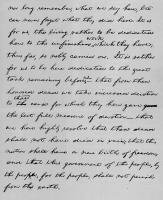 nor long remember, what we say here, but
can never forget what they did here. It is
for us, the living, rather to be dedicated
work
here to the unfinished which they have,
thus far, so nobly carried on. It is rather
for us to be here dedicated to the great
task remaining before us that from these
honored dead we take increased devotion
to the cause for which they here gave
the last full measure of devotion that
we here highly resolve that these dead
shall not have died in vain; that this
nation shall have a new birth of freedom;
and that this government of the people, by
the people, for the people, shall not perish
from the earth.